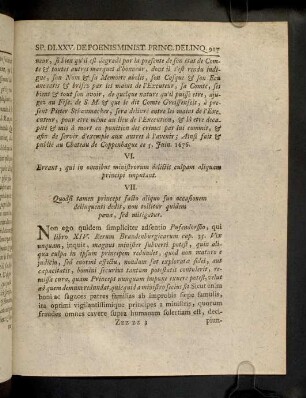 SP. DLXXV. DE POENIS MINIST. PRINC. DELINQ. 917
mor, si bien qu'il est degradé par la presente de son etat de Com-
te & toutes autres marques d'honneur, dont il s'est rendu indi-
gne, son Nom & sa Memoire abolis, son Casque & son Ecu
aneantis & brisés par les mains de l'Executeur, sa Comté, ses
biens & tout son avoir, de quelque nature qu'il puisse etre, ajju-
gés au Fisc. de S. M. & que le dit Comte Greiffenfelt, à pre-
sent Pitter Schumacher, sera delivré entre les mains de l'Exe-
cuteur, pour etre mené au lieu de l'Execution, & là etre deca-
pité & mis à mort en punition des crimes par lui commis, &
afin de servir d'exemple aux autres à l'avenir; Ainsi fait &
publié au Chateau de Coppenhague ce 5. Juin. 1676.
VI.
Errant, qui in omnibus ministrorum delictis culpam aliquam
principi imputant.
VII.
Quodsi tamen princeps facto aliquo suo occasionem
delinquenti dedit, non tollitur quidem
pœna, sed mitigatur.
Non ego quidem simpliciter adsentio Pufendorffio, qui
libro XIV. Rerum Brandenburgicarum cap. 35. Vix
unquam, inquit, magnus minister subverti potest, quin aliqua
culpa in ipsum principem redundet, quod non mature
politie, sed enormi affectu, nondum sat explorata fidei, aut
capacitatis, homini securius tantam potestatem contulerit, re-
missa cura, quam Principe nunquam impune remove potest, velut
ad quem demum redundet, quicquid a ministro factum sit Sicut enim
boni ac sagaces patres familias ab improbis sæpe famulis,
ita optimi vigilantissimique principes a ministris, quorum
fraudem omnes cavere supra humanam solertiam est, deci-
Zzz zz 3 piun-